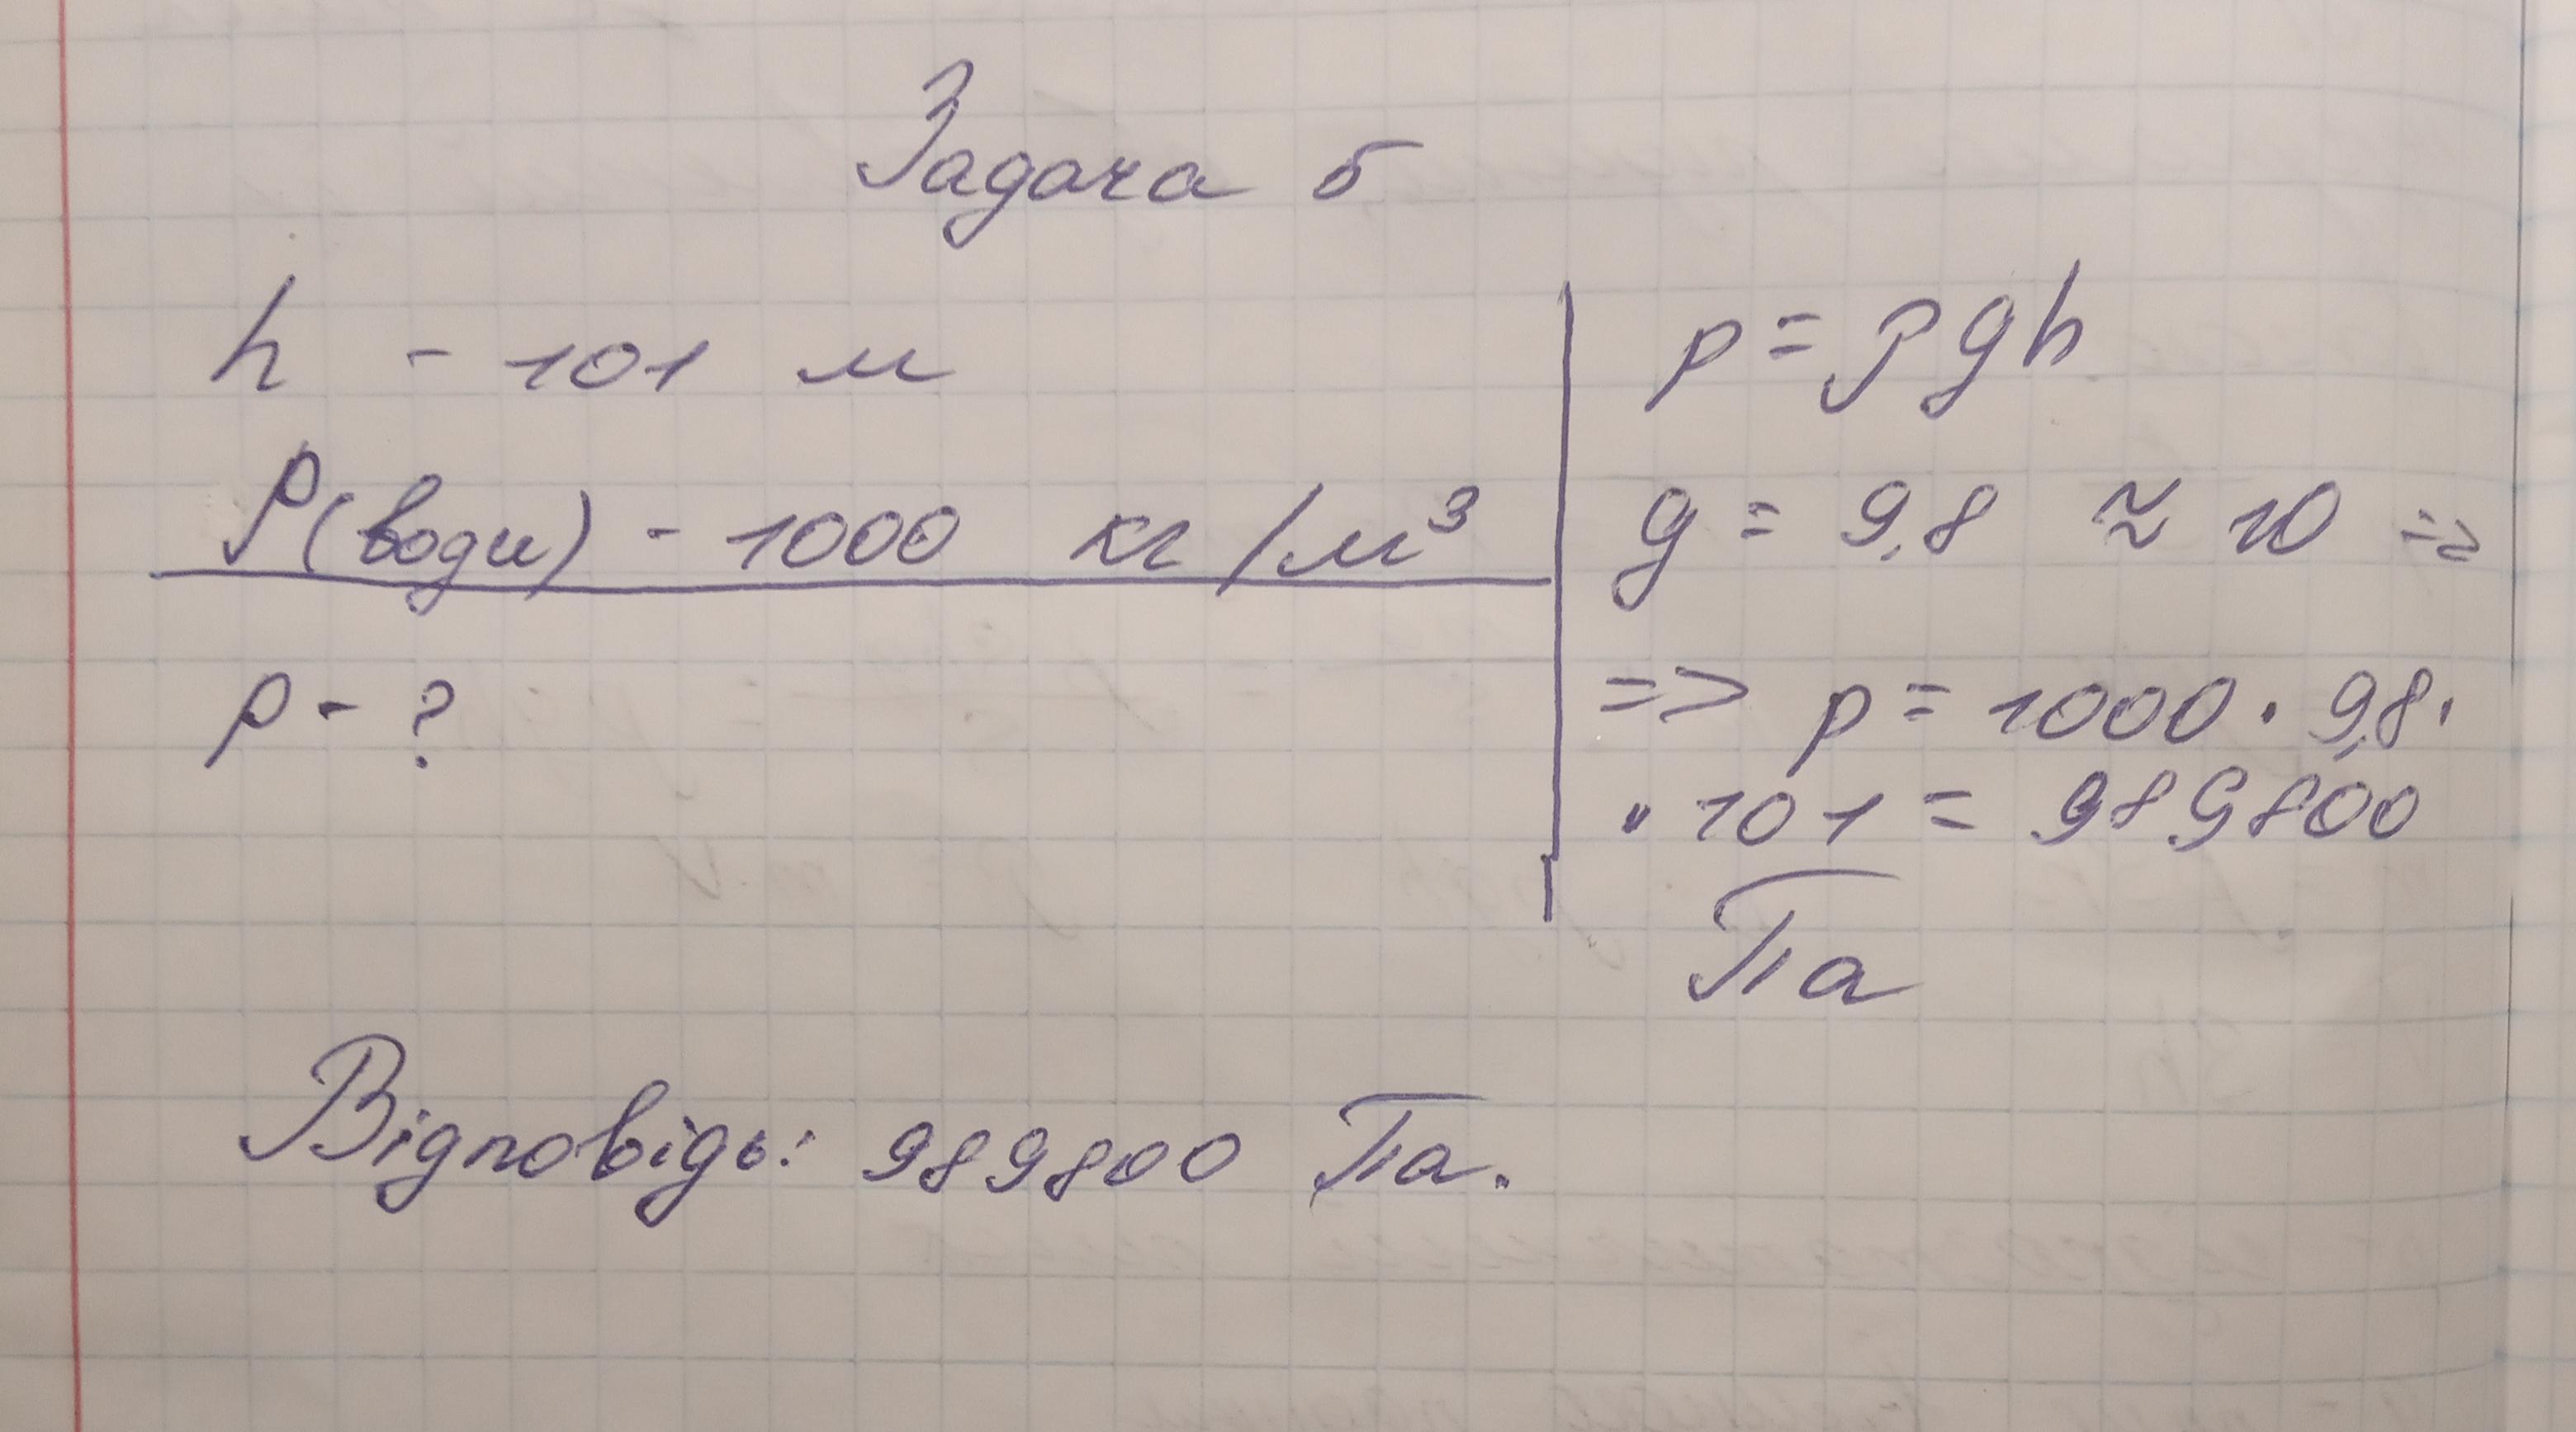 Задача 5
h - 101 м
ρ(води) - 1000 кг/м³
p - ?
p = ρgh
g = 9,8 ≈ 10 =>
=> p = 1000 · 9,8 ·
· 101 = 989800
Па
Відповідь: 989800 Па.